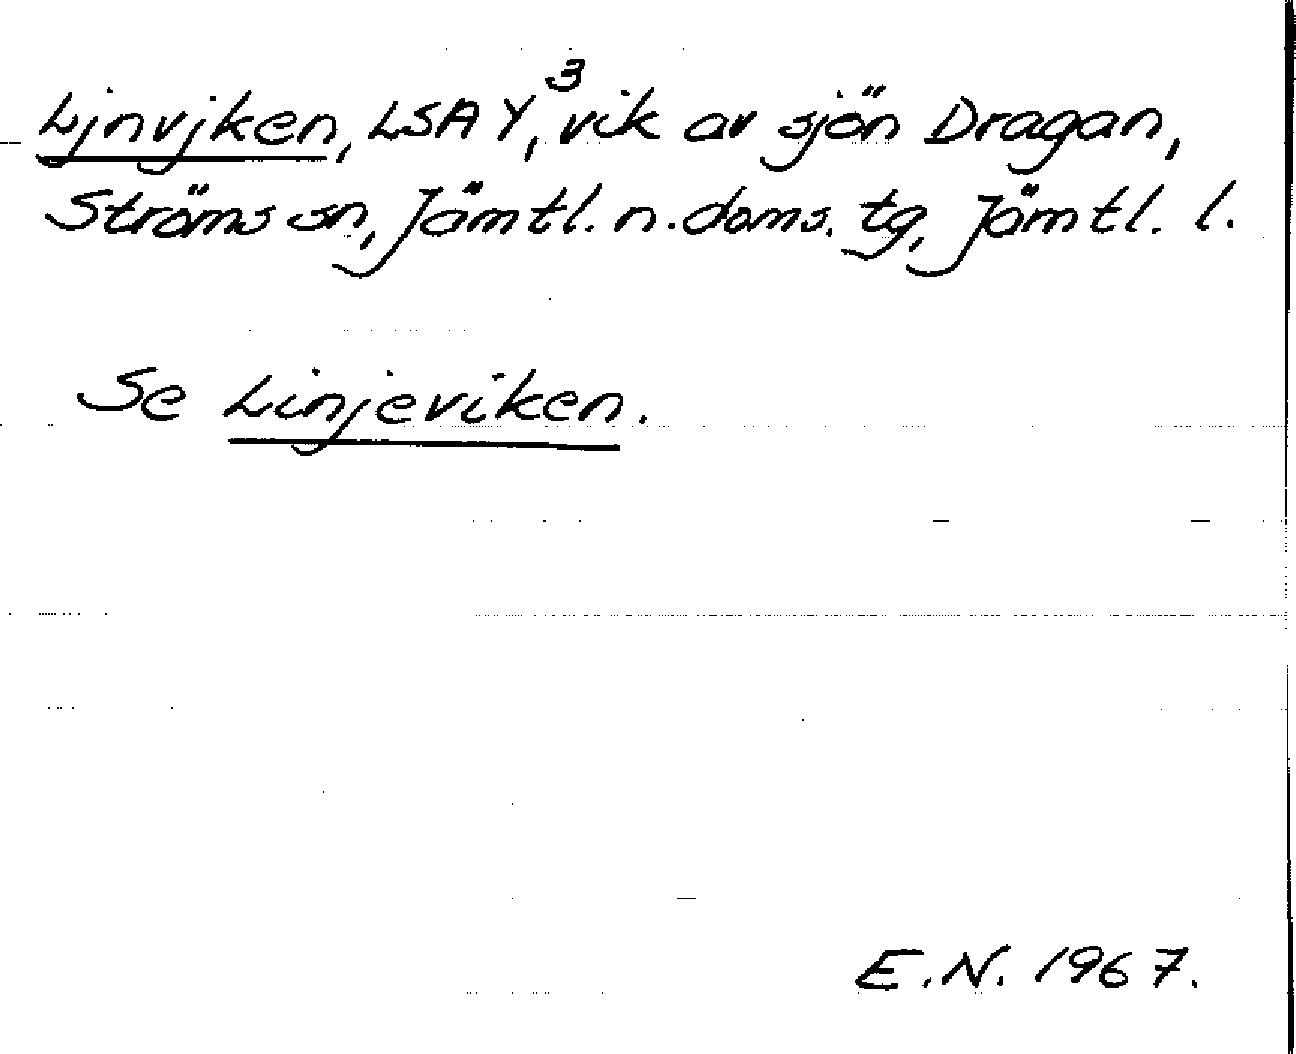 Ljnvjken, LSA Y,³ vik av sjön Dragan,
Ströms sn, Jämtl. n. doms. tg, Jämtl. l.
Se Linjeviken.
E.N. 1967.